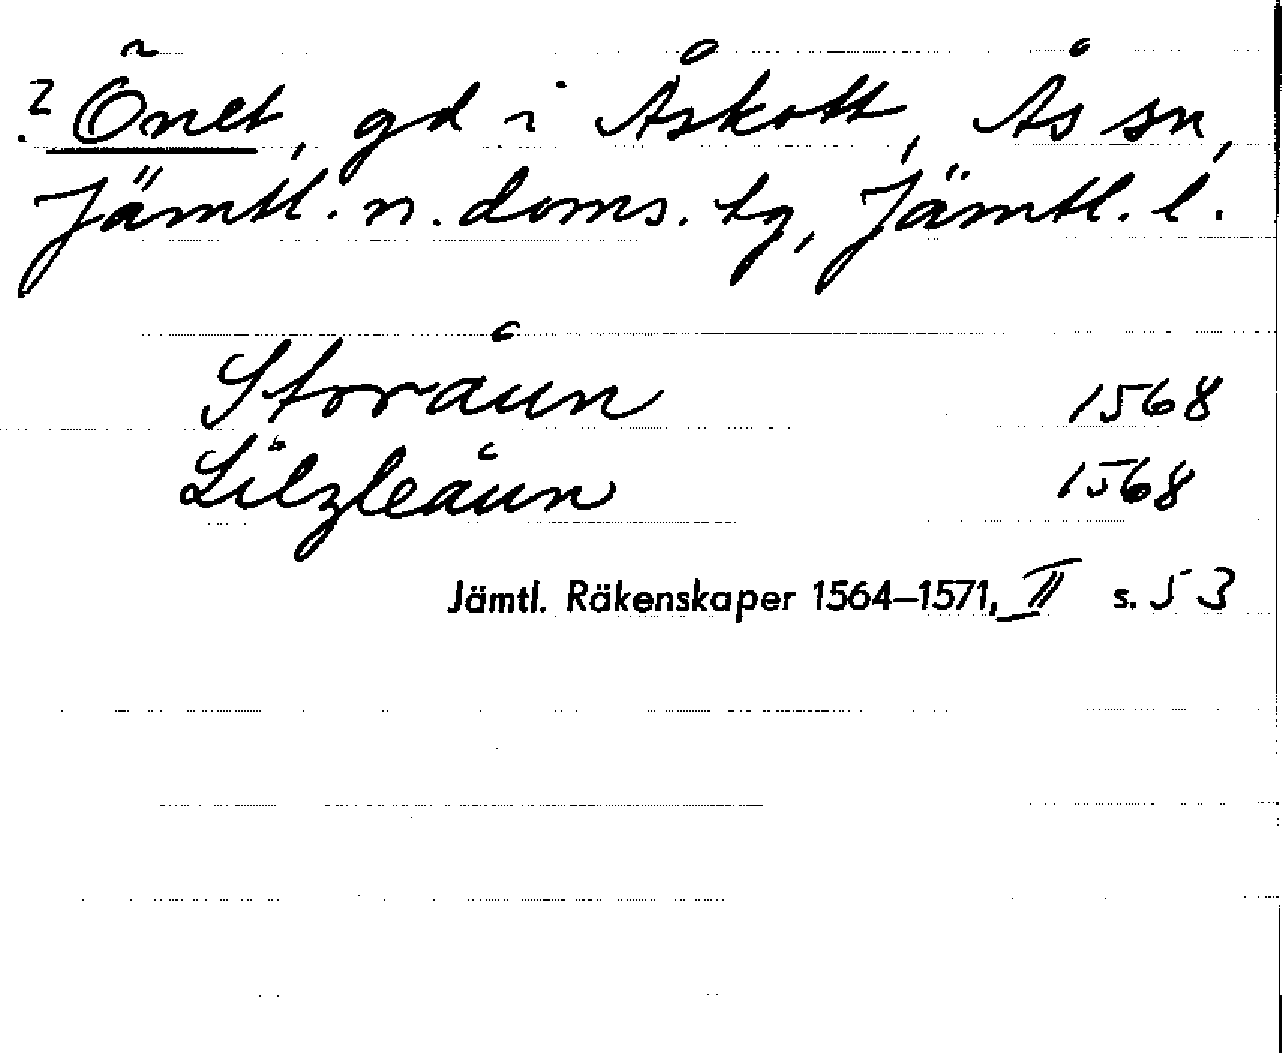 ? Önet, gd i Åskott, Ås sn,
Jämtl. n. doms. tg, Jämtl. l.
Storåun 1568
Lilzleåun 1568
Jämtl. Räkenskaper 1564–1571, II s. 53